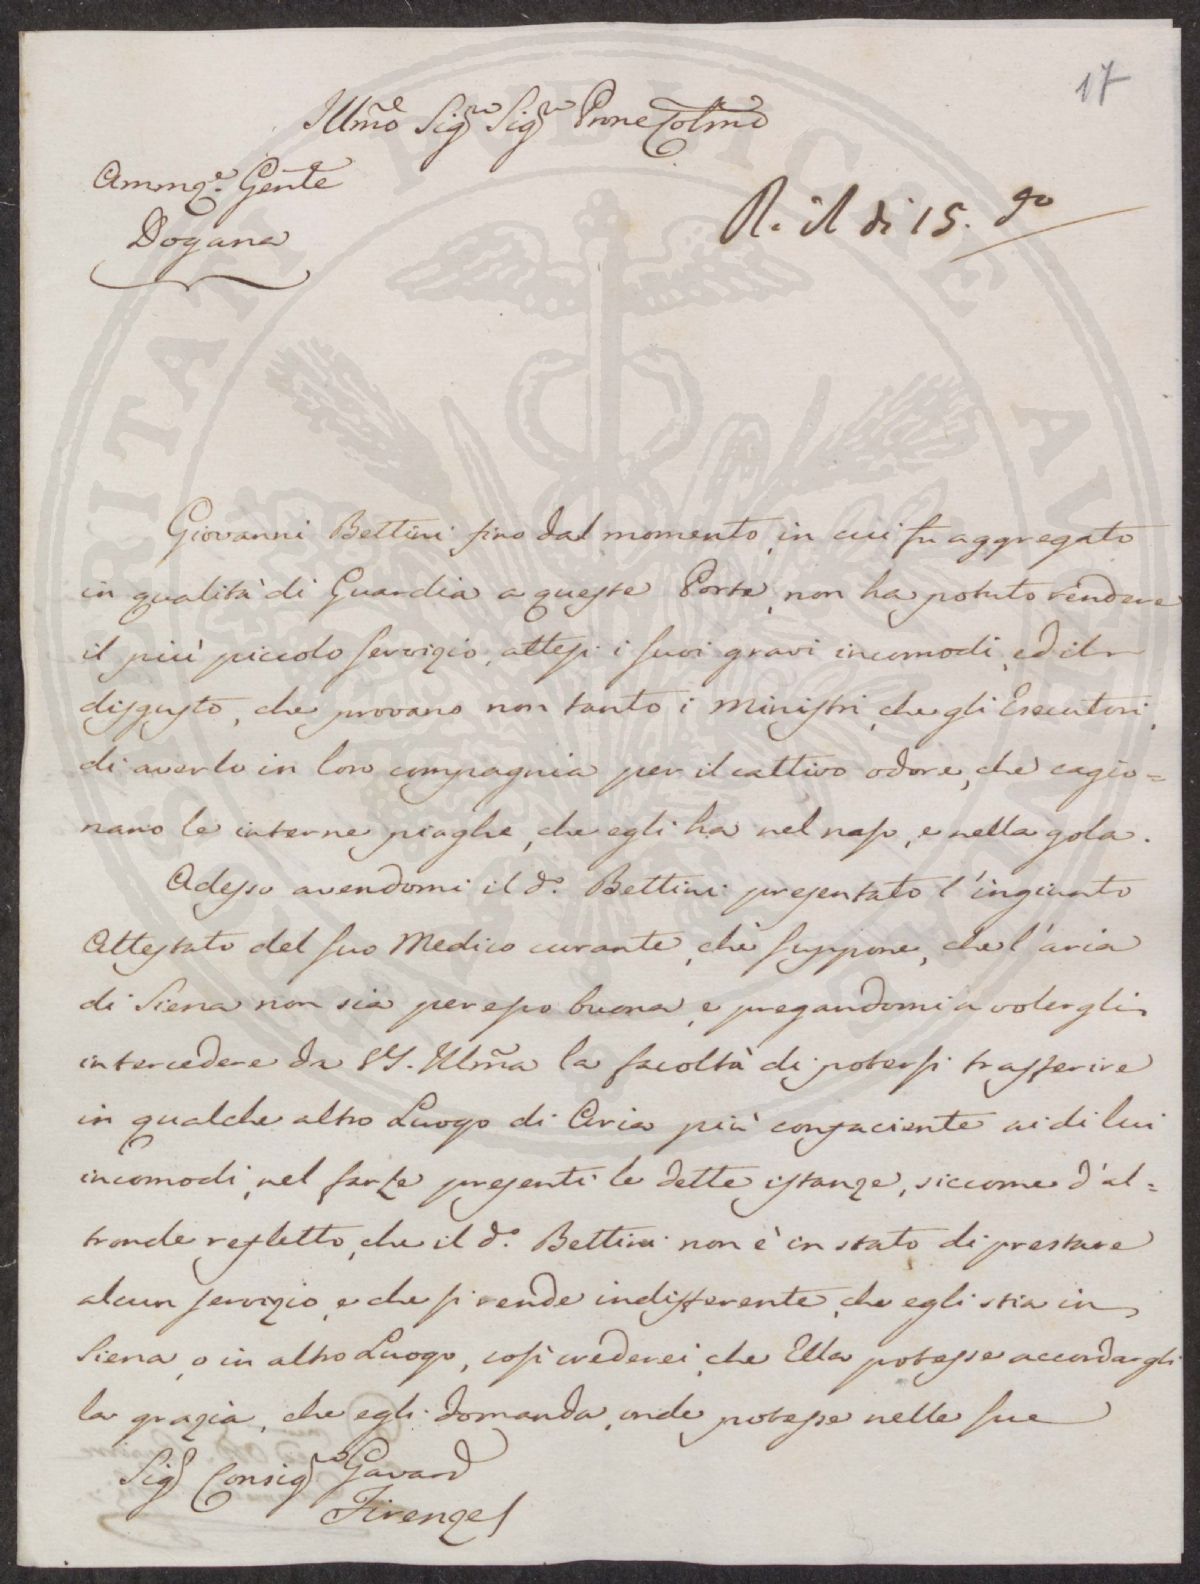 17
Illmo Sigre Sigre Prone Colmo
Ammne Genle
Dogana
R. il di 15. do
Giovanni Bettini fino dal momento, in cui fu aggregato
in qualità di Guardia a queste Porte, non ha potuto rendere
il più piccolo servizio, attesi i suoi gravi incomodi, ed il
disgusto, che provano non tanto i Ministri, che gli Esecutori,
di averlo in loro compagnia per il cattivo odore, che cagio=
nano le interne piaghe, che egli ha nel naso, e nella gola.
Adesso avendomi il do. Bettini presentato l'ingiunto
Attestato del suo Medico curante, che suppone, che l'aria
di Siena non sia per esso buona, e pregandomi a volergli
intercedere da VS. Illma la facoltà di potersi trasferire
in qualche altro Luogo di Aria più confaciente ai di lui
incomodi, nel farle presenti le dette istanze, siccome d'al=
tronde refletto, che il do. Bettini non è in stato di prestare
alcun servizio, e che si rende indifferente, che egli stia in
Siena, o in altro Luogo, così crederei, che Ella potesse accordargli
la grazia, che egli domanda, onde potesse nelle sue
Sigr Consigre Gavard
Firenze